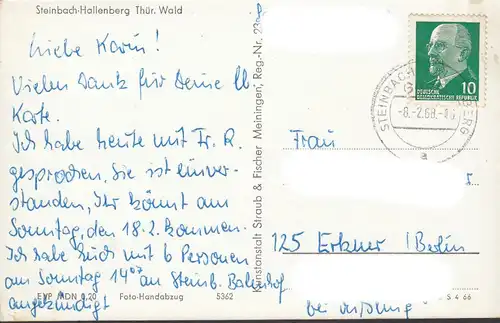 Steinbach-Hallenberg Thür. Wald
Liebe Karin!
Vielen Dank für Deine lb.
Karte.
Ich habe heute mit Fr. R.
gesprochen, sie ist einver-
standen, Ihr könnt am
Sonntag, den 18.2. kommen.
Ich habe Euch mit 6 Personen
am Sonntag 14⁰⁷ am Steinb. Bahnhof
angekündigt
EVP MDN 0,20 Foto-Handabzug 5362
Kunstanstalt Straub & Fischer Meiningen, Reg.-Nr.
10
DEUTSCHE
DEMOKRATISCHE REPUBLIK
STEINBACH-
BERG
-8.-2.68.-16
a
Frau
125 Erkner /Berlin
bei
S 4 66